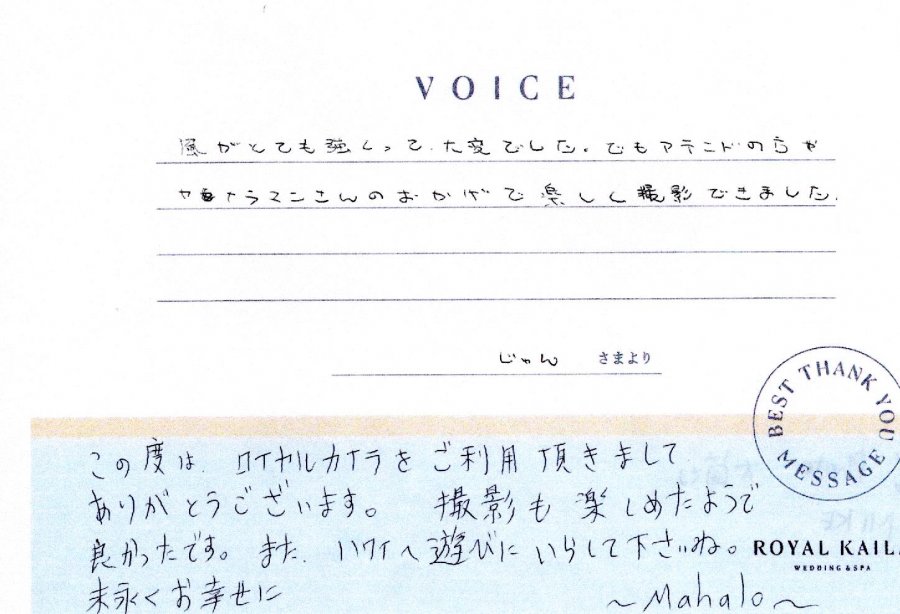 VOICE
風がとても強くって、大変でした。でもアテンドの方や
カメラマンさんのおかげで楽しく撮影できました。
じゃん さまより
BEST THANK YOU MESSAGE
この度は、ロイヤルカイラをご利用頂きまして
ありがとうございます。 撮影も楽しめたようで
良かったです。また、ハワイへ遊びにいらして下さいね。
ROYAL KAILA
WEDDING & SPA
末永くお幸せに
~Mahalo~